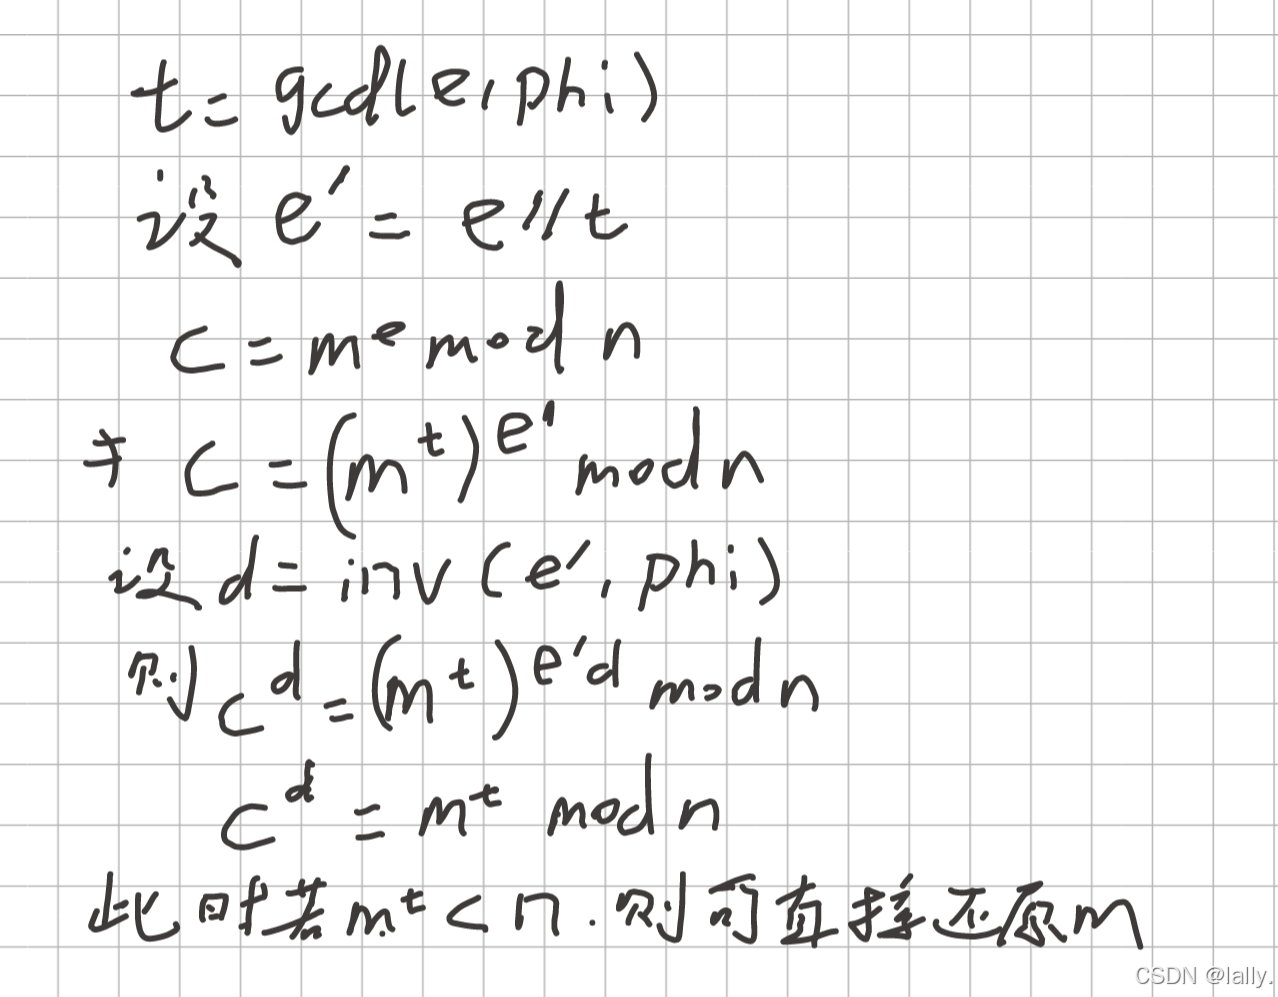 t = gcd(e, phi)
设 e' = e//t
c = m^e mod n
c = (m^t)^e' mod n
设 d = inv(e', phi)
则 c^d = (m^t)^e'd mod n
c^d = m^t mod n
此时若 m^t < n. 则可直接还原m
CSDN @lally.